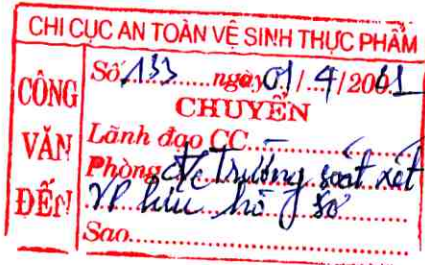 CHI CỤC AN TOÀN VỆ SINH THỰC PHẨM
CÔNG VĂN ĐẾN
Số 133 ngày 01/4/2001
CHUYỂN
Lãnh đạo CC
Phòng đ/c Trường soát xét
VP lưu hồ sơ
Sao